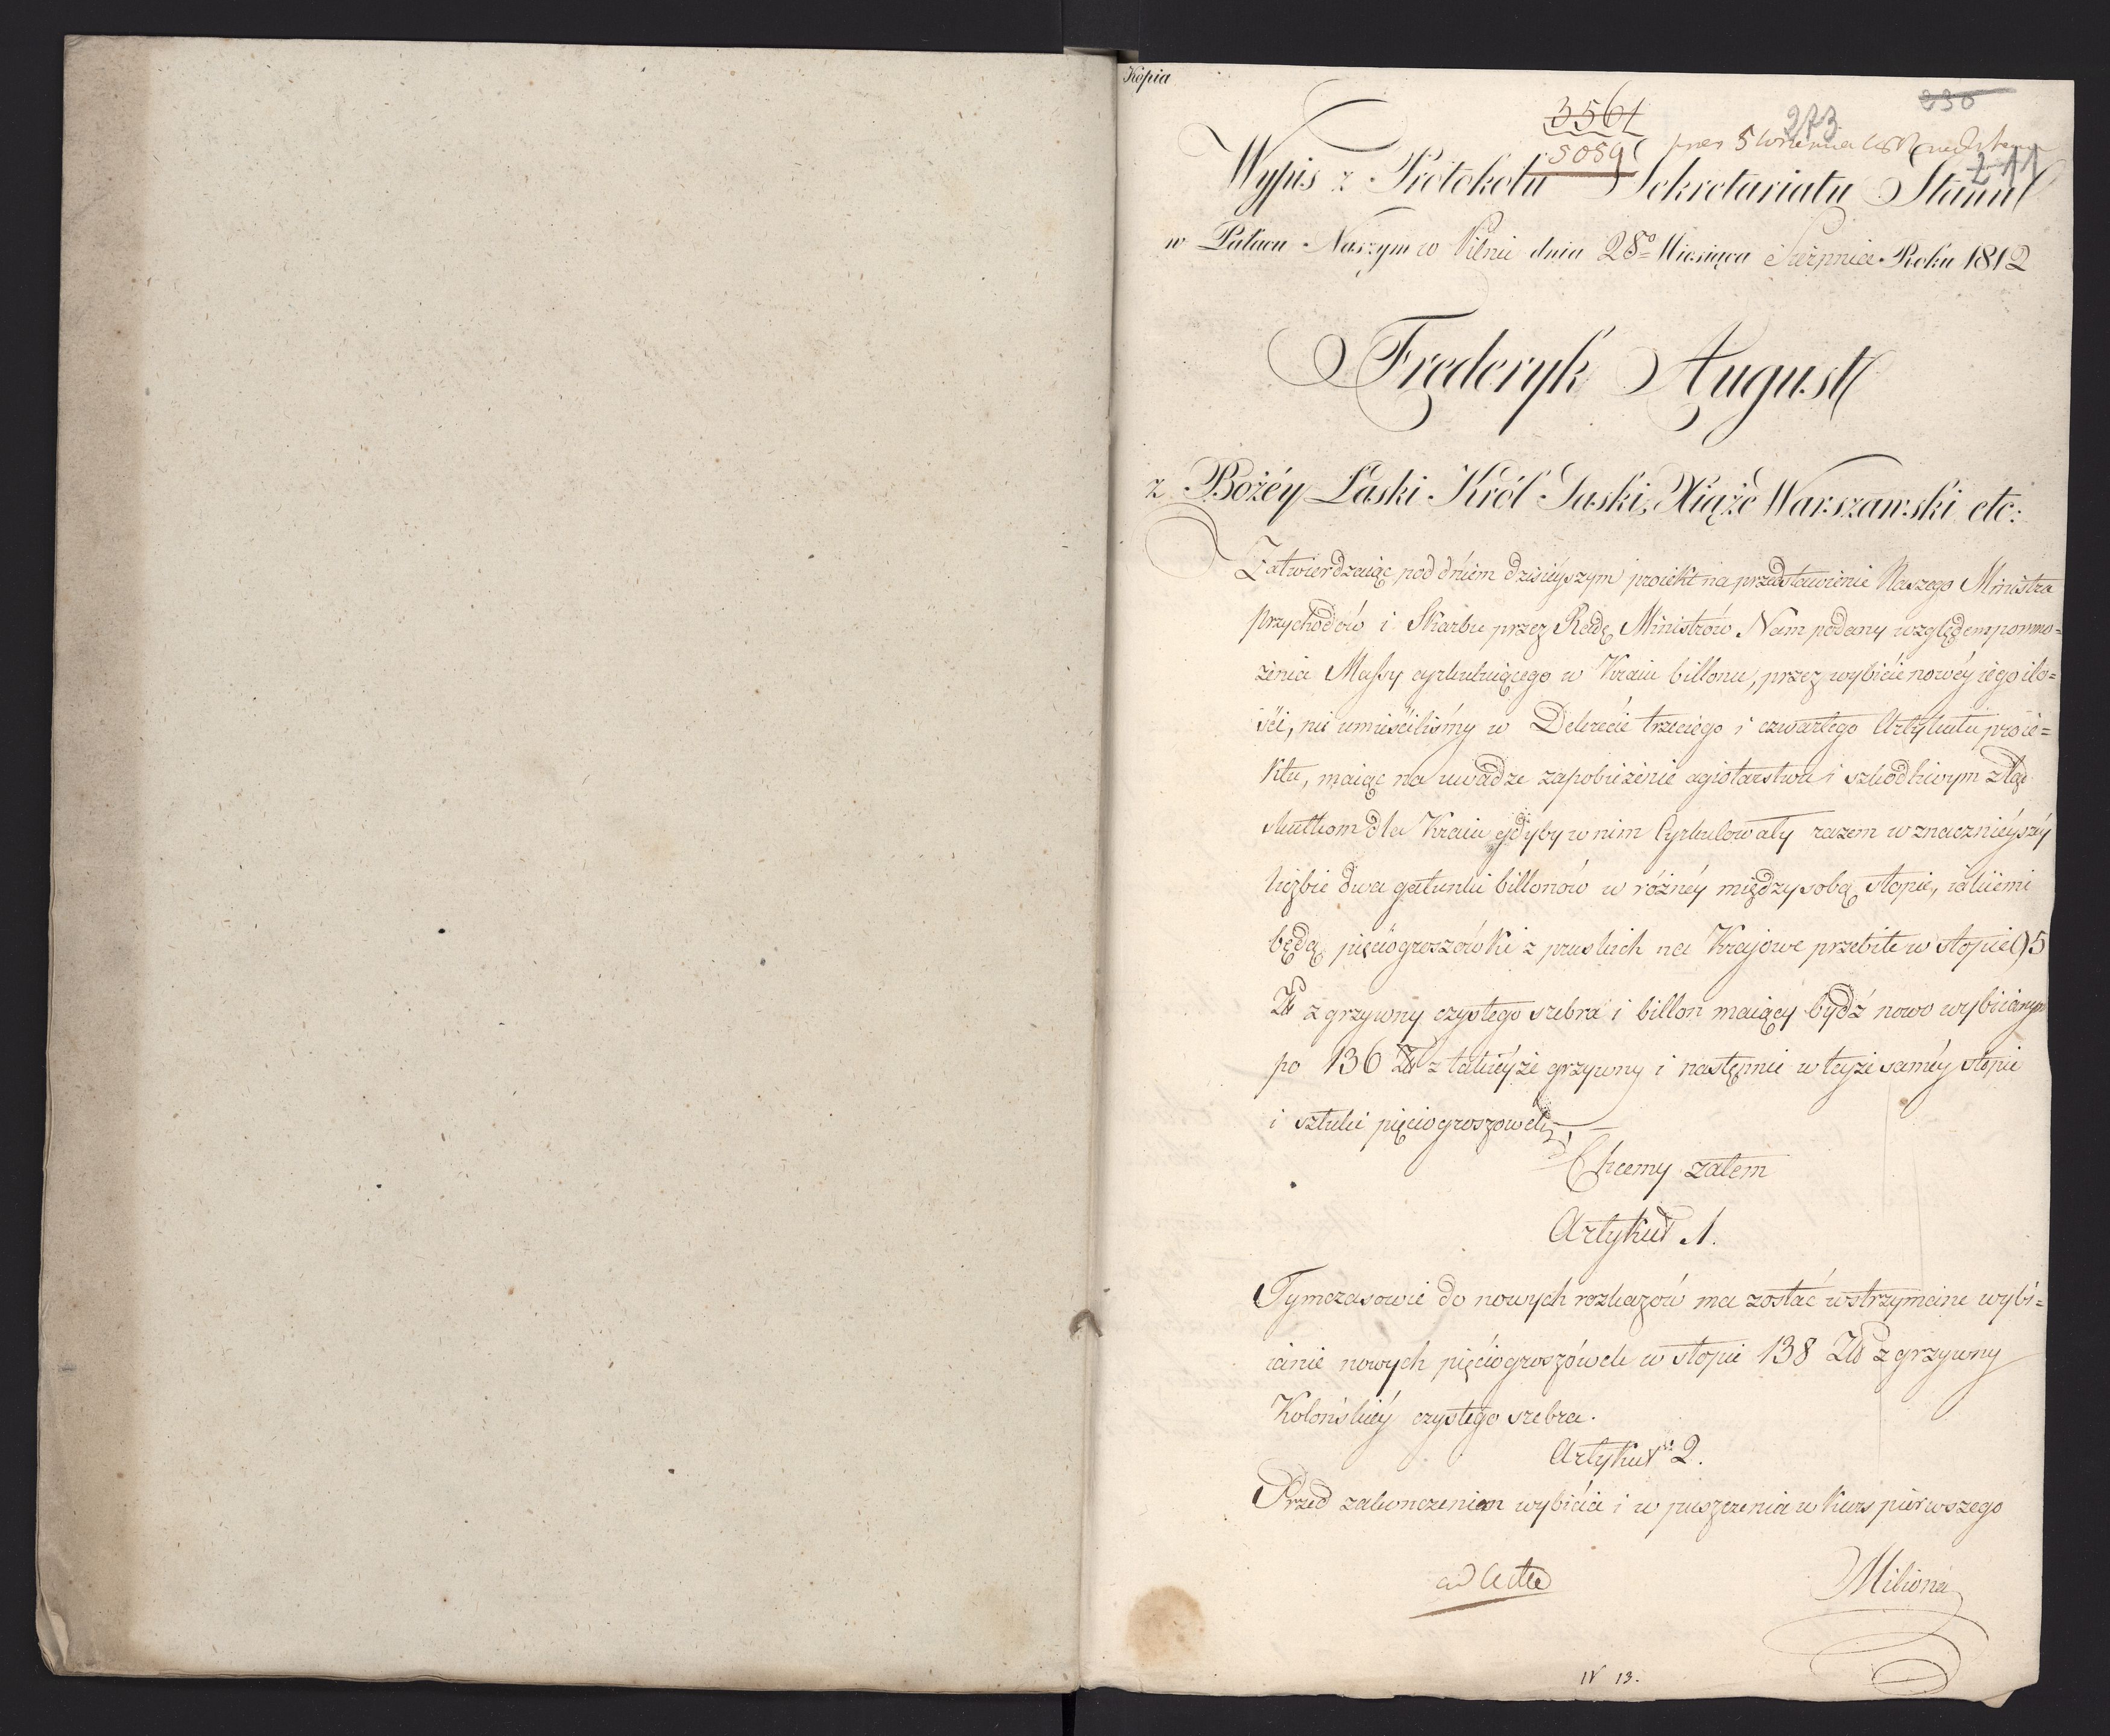 Kopia
3561
5059
273
230
211
pres 5 Września
Wypis z Protokołu Sekretariatu Stanu
w Pałacu Naszym w Pilnie dnia 28º Miesiąca Sierpnia Roku 1812
Frederyk August
z Bożéy Łaski Król Saski, Xiąże Warszawski etc:
Zatwierdzaiąc pod dniem dzisieyszym proiekt na przedstawienie Naszego Ministra
Przychodów i Skarbu przez Radę Ministrów Nam podany względem pomno=
żenia Massy cyrkuluiącego w Kraiu billonu, przez wybicie nowéy iego ilo=
ści, nie umieściliśmy w Dekrecie trzeciego i czwartego Artykułu proie=
ktu, maiąc na uwadze zapobieżenie agiotarstwu i szkodliwym ztąd
skutkom dla Kraiu gdyby w nim Cyrkulowały razem w znacznieyszéy
liczbie dwa gatunki billonów w różnéy między sobą stopie, iakiemi
będą pięciogroszówki z pruskich na Krajowe przebite w stopie 95
Złł z grzywny czystego srebra i billon maiący bydź nowo wybiianym
po 136 Złł z takiéyże grzywny i następnie w teyże saméy stopie
i sztuki pięciogroszowe,
Chcemy zatem
Artykuł 1.
Tymczasowie do nowych rozkazów ma zostać wstrzymane wybi=
ianie nowych pięciogroszówek w stopie 138 Złł z grzywny
Kolońskiéy czystego srebra.
Artykuł 2.
Przed zakonczeniem wybicia i w puszczenia w kurs pierwszego
ad Acta
Miliona
IV 13.